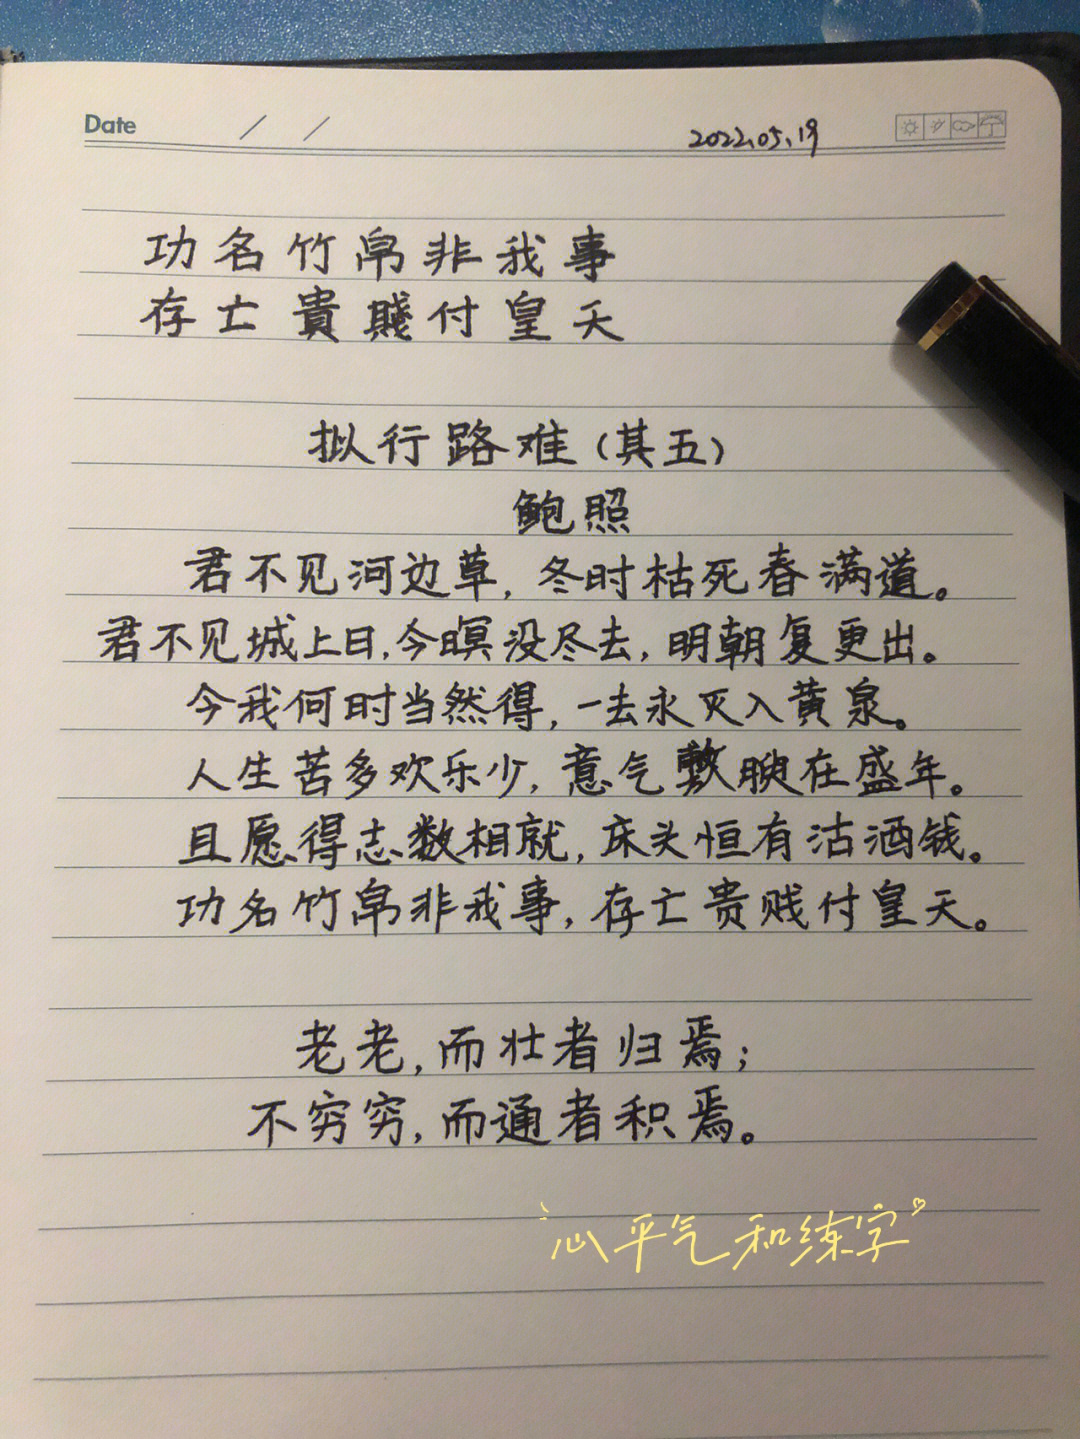 Date / /
2022.05.19
功名竹帛非我事
存亡貴賤付皇天
拟行路难(其五)
鲍照
君不见河边草,冬时枯死春满道。
君不见城上日,今暝没尽去,明朝复更出。
今我何时当然得,一去永灭入黄泉。
人生苦多欢乐少,意气敷腴在盛年。
且愿得志数相就,床头恒有沽酒钱。
功名竹帛非我事,存亡贵贱付皇天。
老老,而壮者归焉;
不穷穷,而通者积焉。
心平气和练字